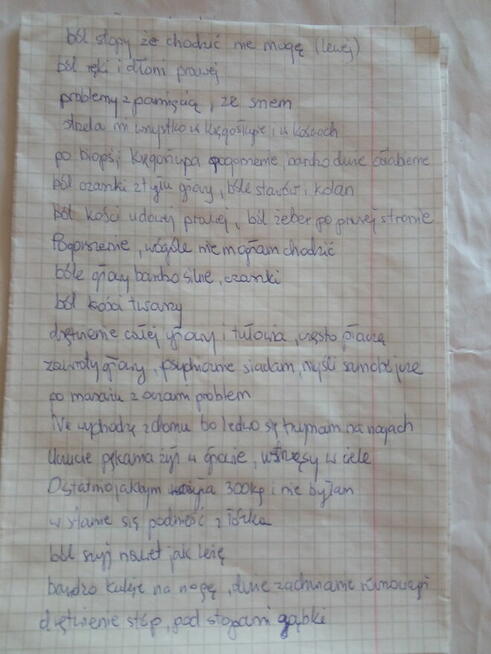 ból stopy że chodzić nie mogę (lewej)
ból ręki i dłoni prawej
problemy z pamięcią, ze snem
wszystko w kręgosłupie i w kościach
po biopsji kręgosłupa pogorszenie, bardzo duże osłabienie
ból czaszki z tyłu głowy, bóle stawów, kolan
ból kości udowej prawej, ból żeber po prawej stronie
Pogorszenie, wogóle nie mogłam chodzić
bóle głowy bardzo silne, czaszki
ból kości twarzy
drętwienie całej głowy i tułowia, często płaczę
zawroty głowy, psychicznie siadam, myśli samobójcze
po masażu z oczami problem
Nie wychodzę z domu bo ledwo się trzymam na nogach
Uczucie pękania żył w głowie, wstrząsy w ciele
Ostatnio jakbym 300kg i nie byłam
w stanie się podnieść z łóżka
ból szyj nawet jak leżę
bardzo kuleje na nogę, duże zachwianie równowagi
drętwienie stóp, pod stopami gąbki